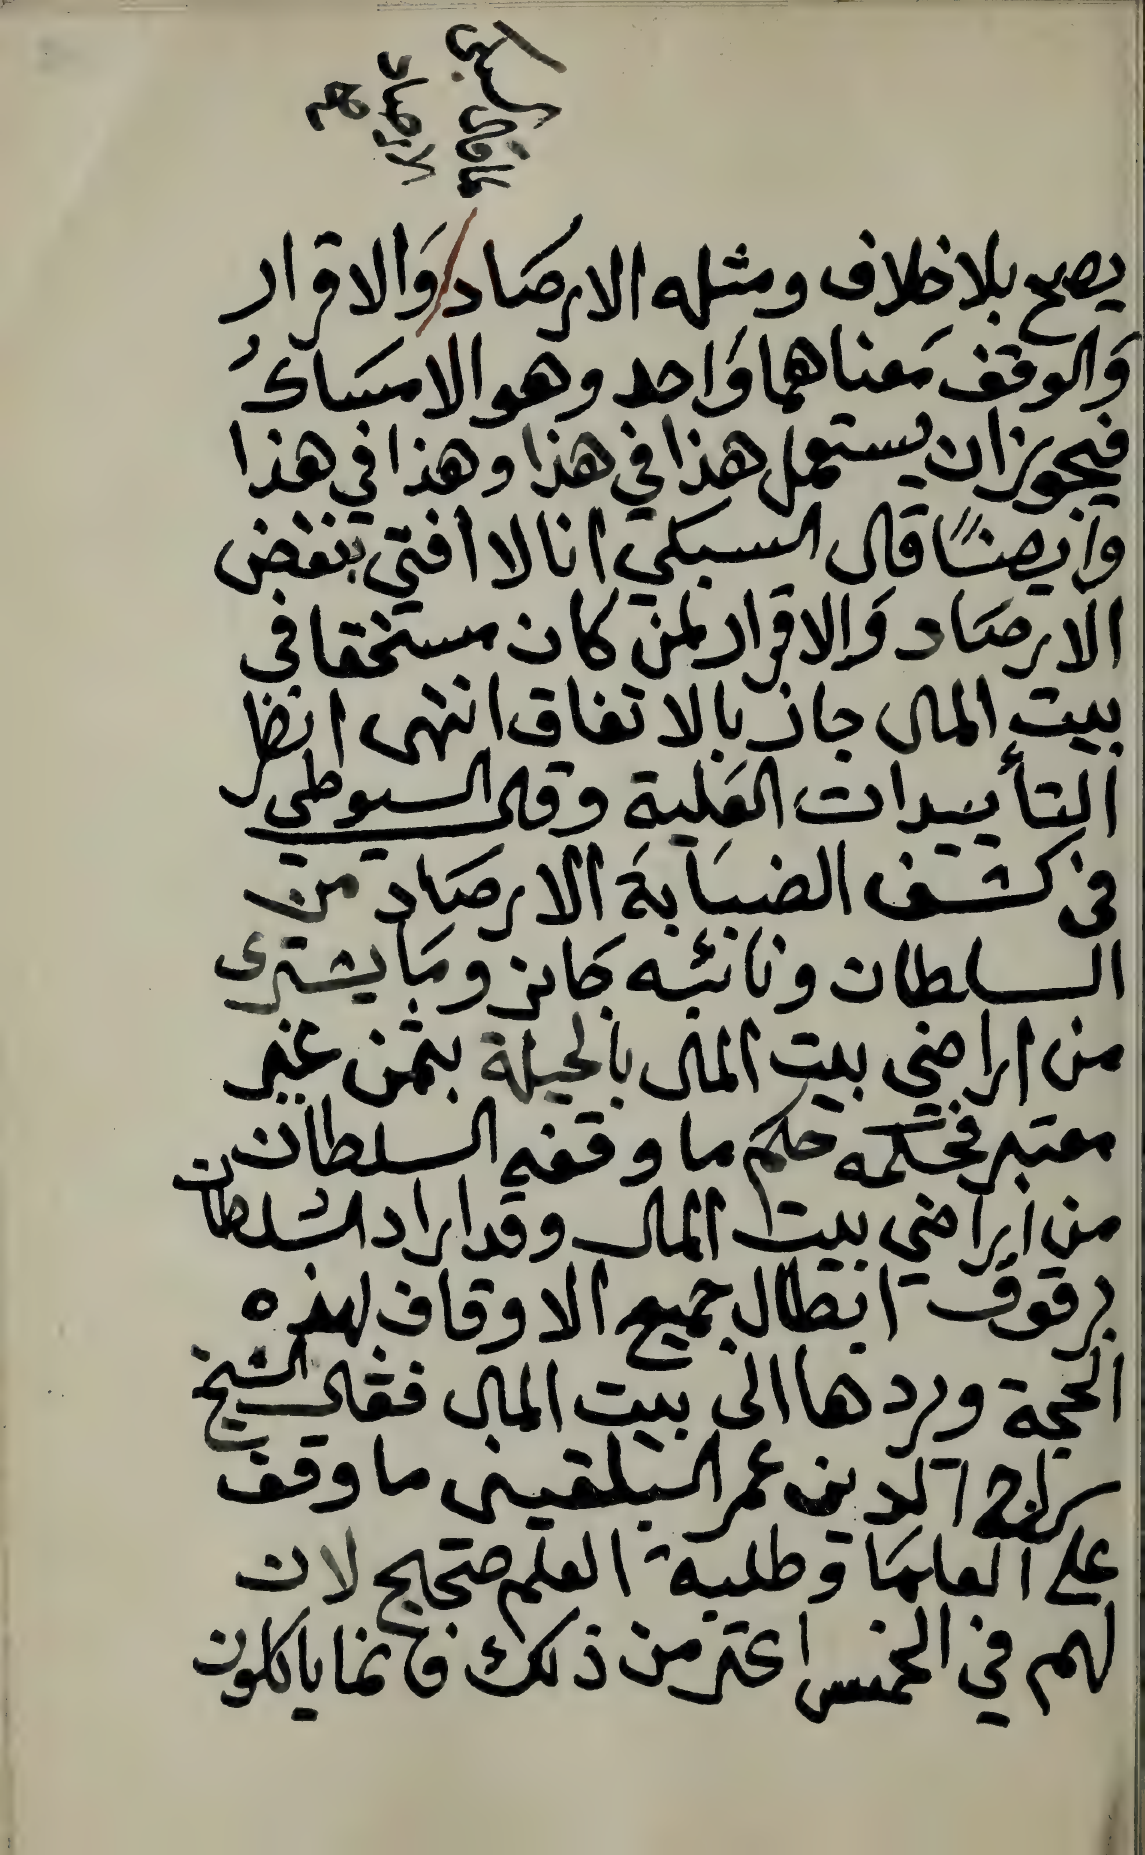 ما قال السبكي
الارصاد
يصح بلا خلاف ومثله الارصاد والاقرار
والوقف معناهما واحد وهو الامساك
فيجوز ان يستعمل هذا في هذا وهذا في هذا
وايضًا قال السبكي انا لا افتي بنقض
الارصاد والاقرار لمن كان مستحقا في
بيت المال جاز بالاتفاق انتهى انظر
التأييدات العلية وقال السيوطي
في كشف الضبابة الارصاد من
السلطان ونائبه جائز وما يشترى
من اراضي بيت المال بالحيلة بثمن غير
معتبر فحكمه حكم ما وقفه السلطان
من اراضي بيت المال وقد اراد السلطان
برقوق ابطال جميع الاوقاف لهذه
الحجة وردها الى بيت المال فقال الشيخ
سراج الدين عمر البلقيني ما وقف
على العلما وطلبة العلم صحيح لان
لهم في الخمس اكثر من ذلك وانما ياكلون